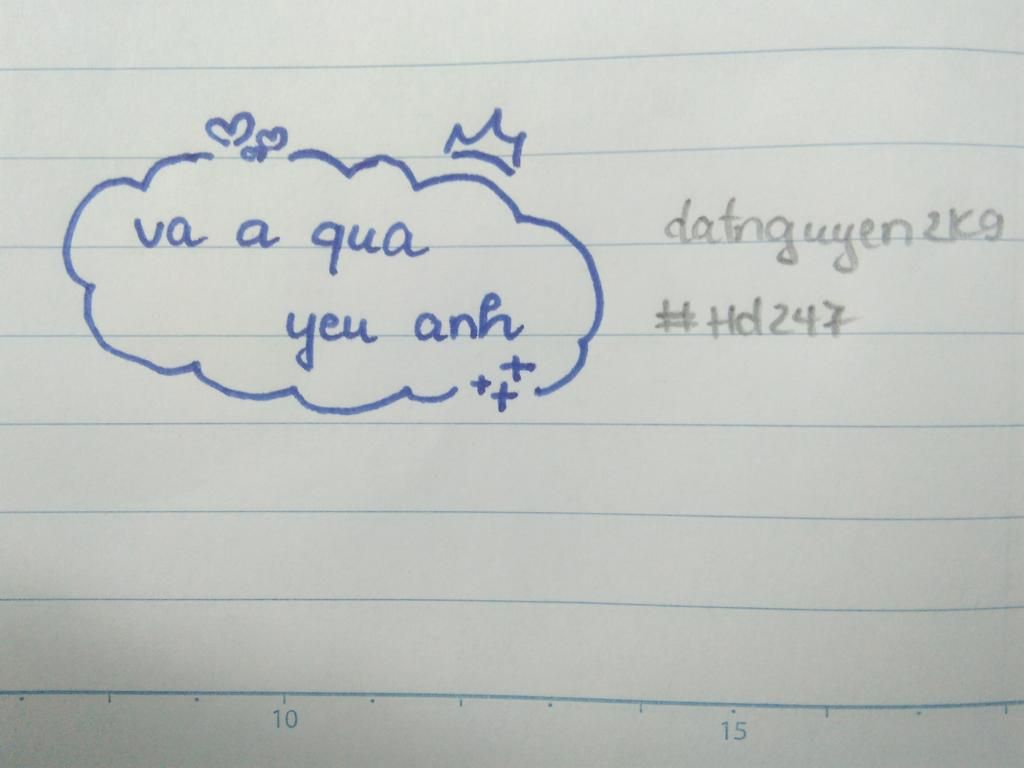 va a qua
yeu anh
datnguyen2k9
#Hd247
10
15